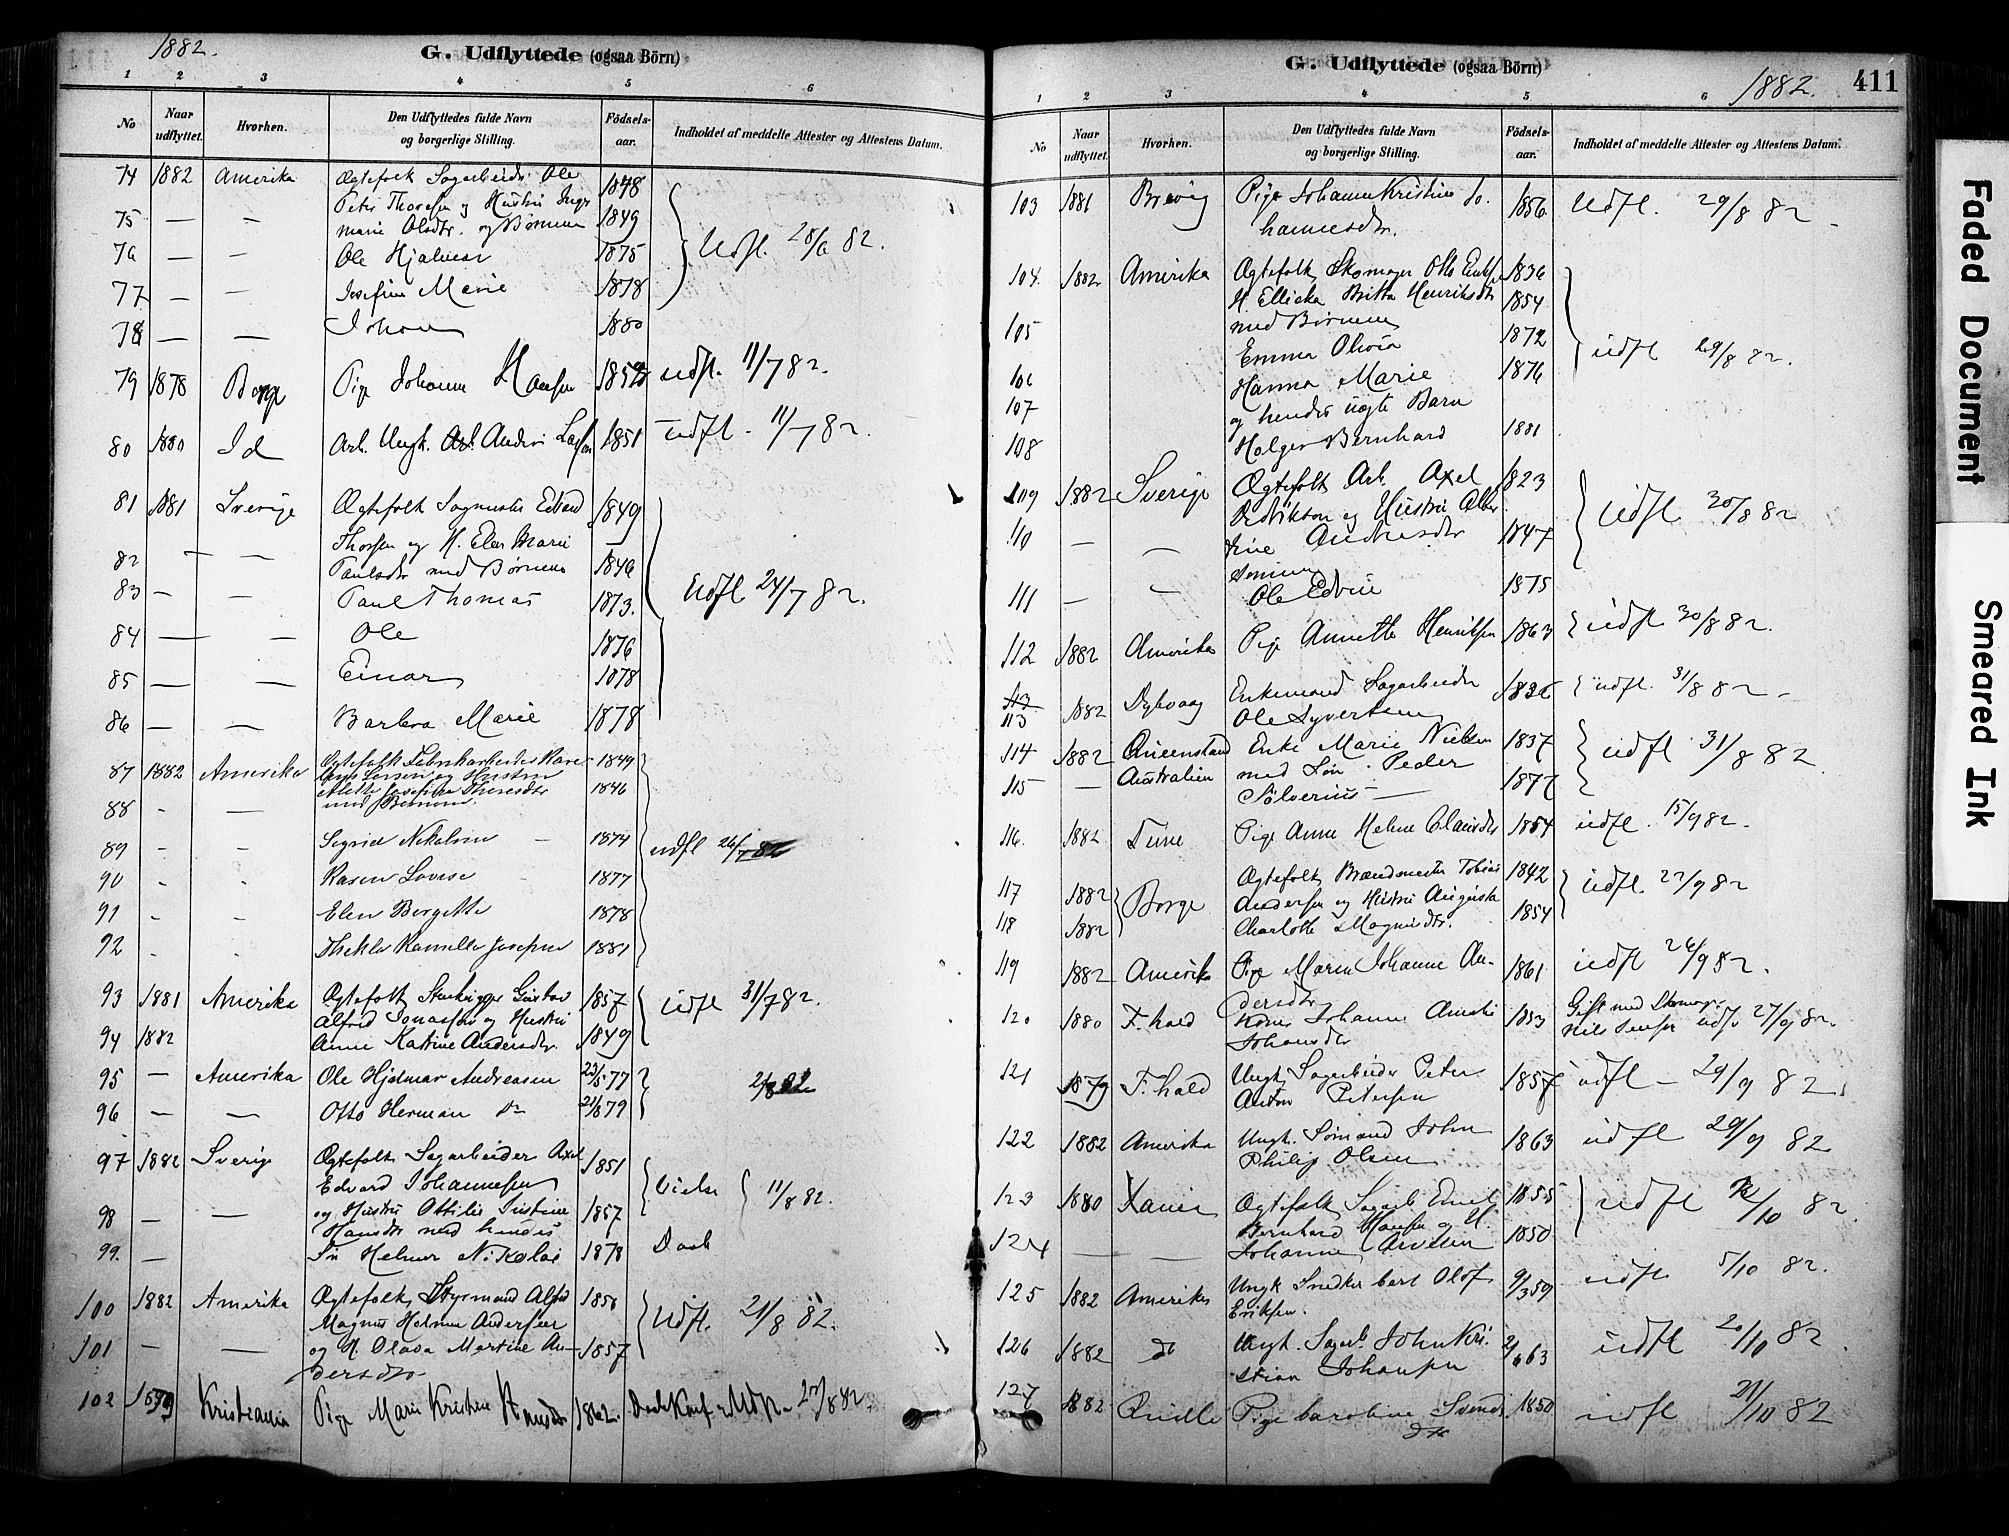 1882.
G. Udflyttede (ogsaa Börn)
1 2 3 4 5 6
No
Naar udflyttet.
Hvorhen.
Den Udflyttedes fulde Navn og borgerlige Stilling.
Födsels-aar.
Indholdet af meddelte Attester og Attestens Datum.
74 1882 Amerika Ægtefolk Sagarbeider Ole 1848
Peter Thoresen og Hustru Inger
75 — — Marie Olsdtr. og Børnene 1849
76 — — Ole Hjalmar 1875 Udfl. 28/6 82.
77 — — Josefine Marie 1878
78 — — Johan 1880
79 1878 Borge Pige Johanne Hansen udfl. 11/7 82.
80 1880 Id Arb. Ungk. Anders 1851 Udfl. 11/7 82.
81 1881 Sverige Ægtefolk Sagmester Edvard 1849
Thorsen og H. Elen Marie
82 — — Paulsdtr med Børnene 1846
83 — — Paul Thomas 1873. Udfl 24/7 82.
84 — — Ole 1876
85 — — Einar 1878
86 — — Barbra Marie 1878
87 1882 Amerika Ægtefolk 1849
Larsen og Hustru
Josefine 1846
88 - — med Børnene
89 - - Sigrid Nikoline 1874 udfl 26/7 82
90 - - Karen Lovise 1877
91 - - Elen Bergette 1878
92 - - Thekla Kamilla Josefine 1881
93 1881 Amerika Ægtefolk Stenhugger Gustav 1857 Udfl 31/7 82.
Alfred Jonassen og Hustru
94 1882 Anne Katrine Andersdtr. 1849
95 — Amerika Ole Hjalmar Andreasen 23/5 77 2/8 82
96 — — Otto Herman do 21/8 79
97 1882 Sverige Ægtefolk Sagarbeider Axel 1851
Edvard Johannesen Vielse 11/8 82.
98 — — og Hustru Ottilie Justine 1857
Hansdtr med hendes
99. — Søn Helmer Nikolai 1878 Daab
100 1882 Amerika Ægtefolk Styrmand Alfred 1850
Magnus Helmer Andersen Udfl. 21/8 82.
101 — — og H. Olava Martine An- 1857
dersdtr
102 1879 Kristiania Pige Marie Kristine Hansdtr 1862. Daab Konf. 27/8 82.
G. Udflyttede (ogsaa Börn)
1882. 411
1 2 3 4 5 6
No
Naar udflyttet.
Hvorhen.
Den Udflyttedes fulde Navn og borgerlige Stilling.
Födsels-aar.
Indholdet af meddelte Attester og Attestens Datum.
103 1881 Brevig Pige Johanne Kristine Jo- 1856 Udfl. 29/8 82
hannesdtr.
104. 1882 Amerika Ægtefolk Skomager Otto 1836
105 H. Ellicka Britta Henriksdtr 1854
med Børnene
106 Emma Olivia 1872 udfl 29/8 82.
107 Hanna Marie 1876
og hendes uægte Barn
108 Holger Bernhard 1881
109 1882 Sverige Ægtefolk Arb. Axel 1823
Fredrikson og Hustru Udfl 30/8 82
110 — — Andreasdtr 1847
Sønnen
111 — — Ole Edvin 1875
112 1882 Amerika Pige Annette Henriksen 1863 udfl 30/8 82.
113
113 1882 Dybvaag Enkemand Sagarbeider udfl. 31/8 82 -
Ole Syvertsen
114 1882 Queensland Enke Marie Nielsen 1837 udfl 31/8 82
115 — Australien med Søn Peder 1877
Sølverius —
116. 1882 Tune Pige Anne Helene Clausdtr 1854 udfl. 15/9 82.
117 1882 Borge Ægtefolk Brændmester Tobias 1842 udfl 22/9 82
118 1882 Andersen og Hustru Augusta 1854
Charlotte Magnusdtr.
119 1882 Amerika Pige Maren Johanne An- 1861 udfl 26/9 82.
dersdtr
120 1880 F.hald Kone Johanne 1853 Gift med Skomager
Johansdtr Nils Jensen udfl 27/9 82.
121 1879 F.hald Ungk. Sagarbeider Peter 1857 udfl — 29/9 82
Anton Petersen
122 1882 Amerika Ungk. Sømand John 1863 udfl 29/9 82
Philip Olsen
123 1880 Ægtefolk Sagarb. Emil 1855 udfl 82.
124 — — Bernhard Hansen og H. 1850
Johanne
125 1882 Amerika Ungk Snedker Carl Olof 9/3 59 udfl 5/10 82.
Eriksen.
126 1882 do Ungk. Sagarb. John Kri- 2/6 63 udfl 20/10 82
stian Johansen
127 1882 Pige Caroline Svends 1850 udfl 21/10 82
dtr
Faded Document
Smeared Ink